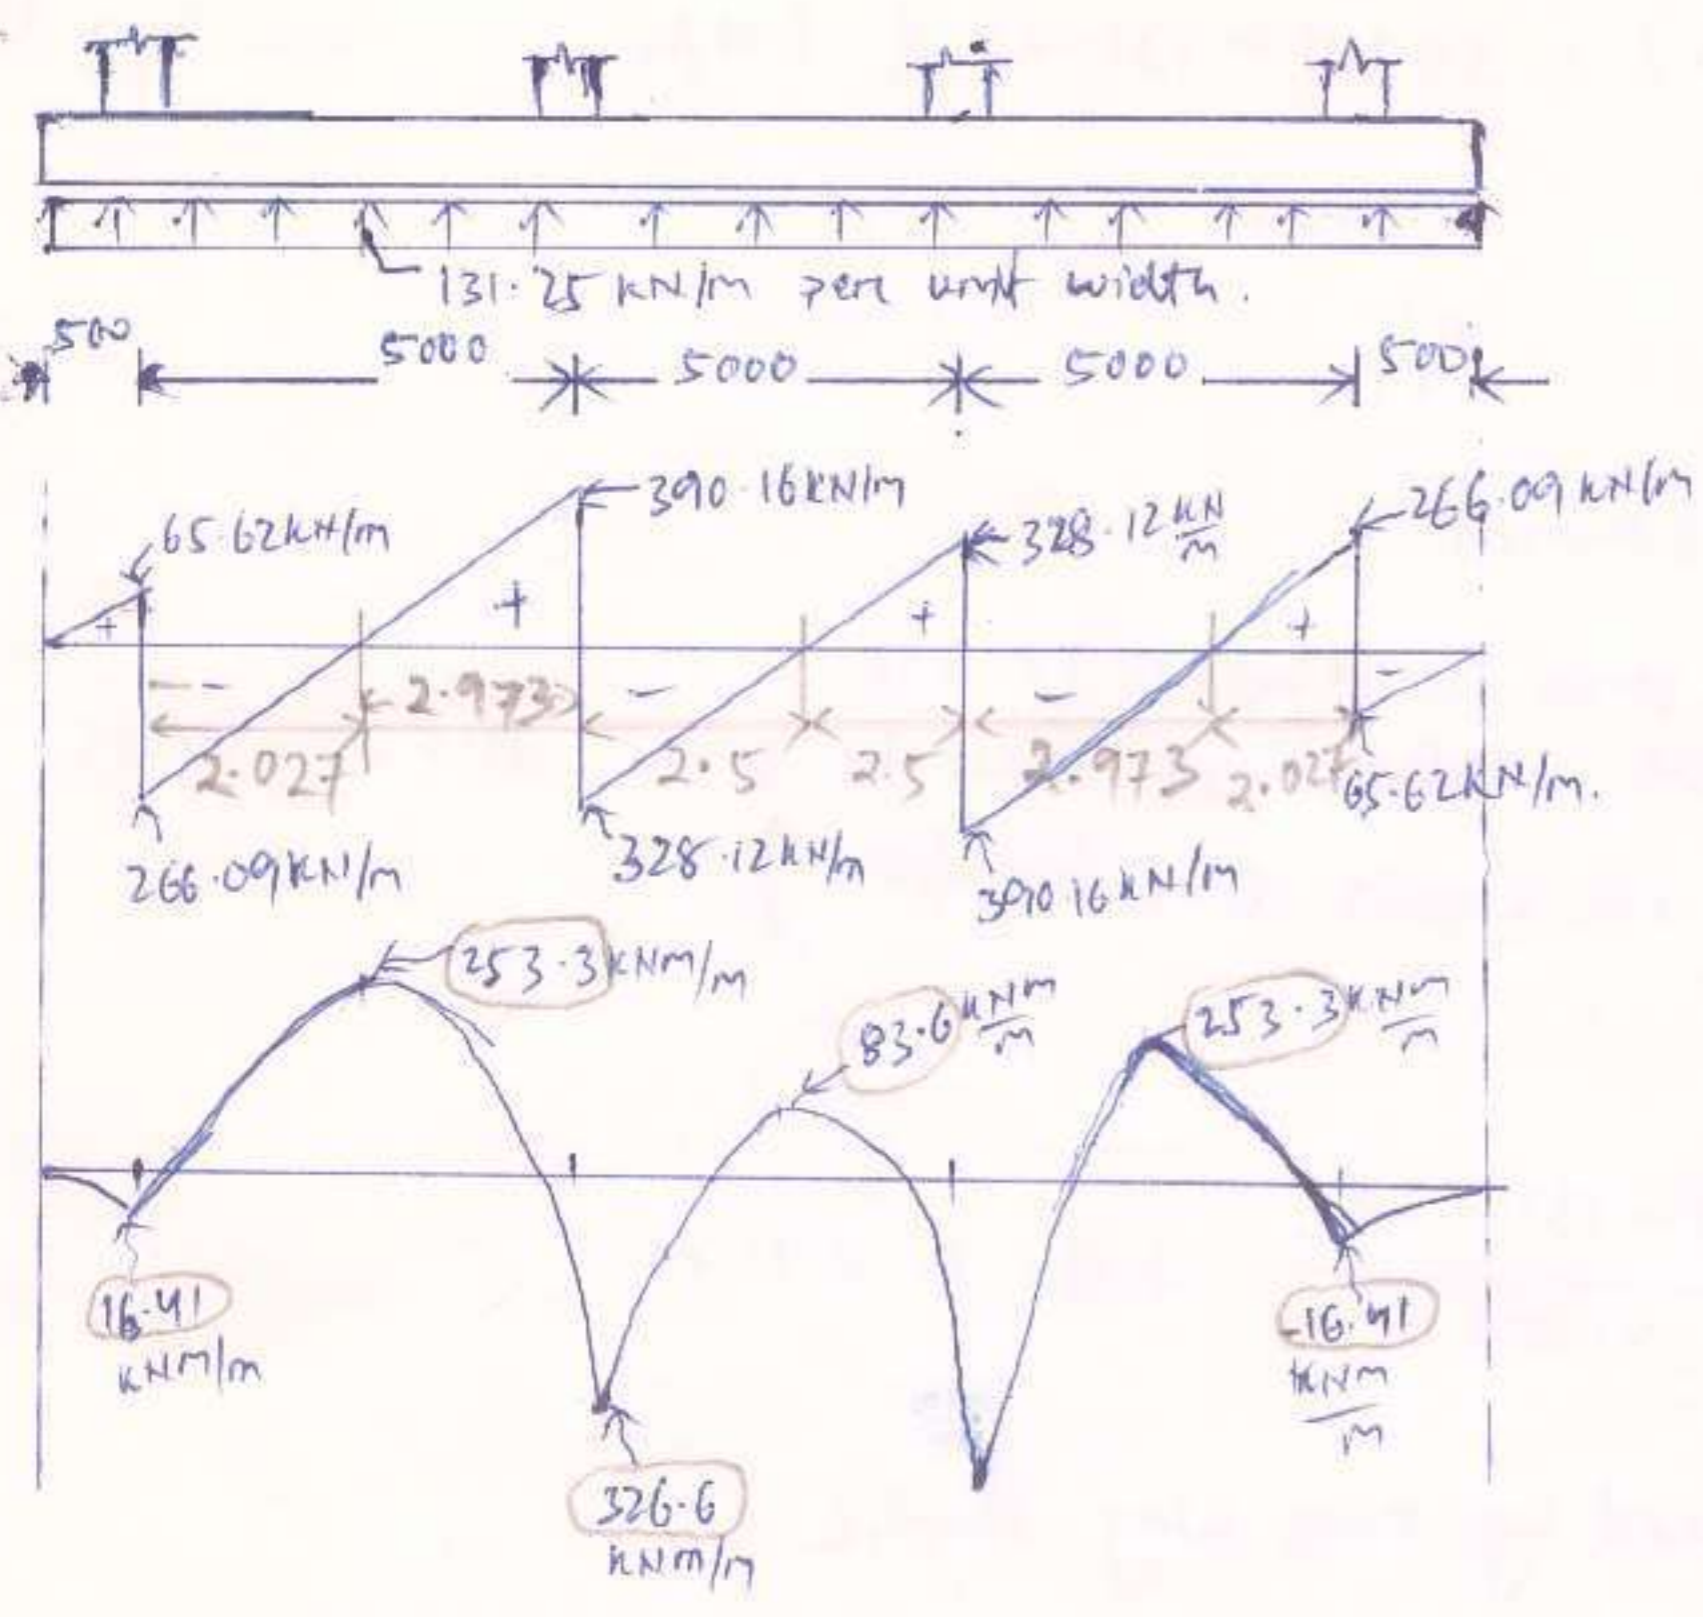 131.25 KN/m per unit width.
500
5000
5000
5000
500
390.16KN/m
266.09 KN/m
65.62KN/m
328.12 KN
m
+
+
+
+
- -
2.973
-
-
-
2.027
2.5
2.5
2.973
2.027
65.62KN/m.
266.09KN/m
328.12KN/m
390.16KN/m
253.3KNm/m
83.6 KNm
m
253.3 KNm
m
16.41
KNm/m
-16.41
KNm
m
326.6
KNm/m